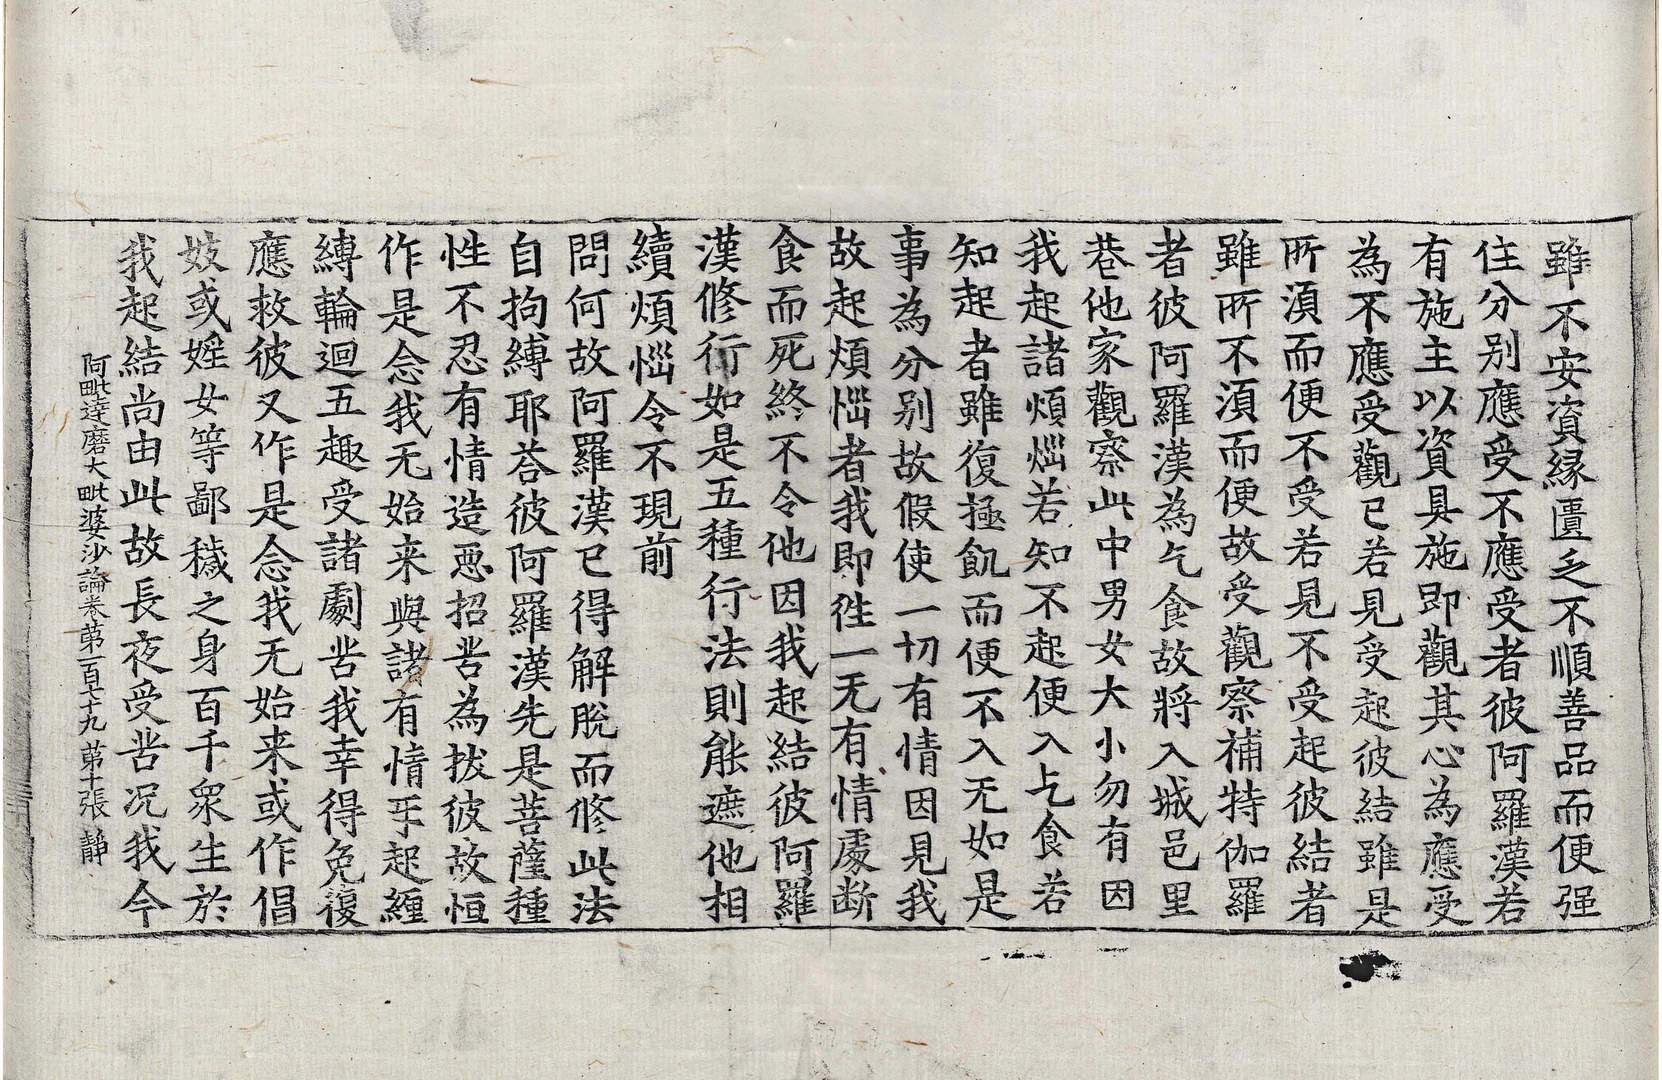 雖不安資縁匱乏不順善品而便强
住分别應受不應受者彼阿羅漢若
有施主以資具施即觀其心為應受
為不應受觀已若見受起彼結雖是
所湏而便不受若見不受起彼結者
雖所不湏而便故受觀察補特伽羅
者彼阿羅漢為乞食故將入城邑里
巷他家觀察此中男女大小勿有因
我起諸煩惱若知不起便入乞食若
知起者雖復極飢而便不入无如是
事為分别故假使一切有情因見我
故起煩惱者我即往一无有情處断
食而死終不令他因我起結彼阿羅
漢修行如是五種行法則能遮他相
續煩惱令不現前
問何故阿羅漢已得解脫而修此法
自拘縛耶荅彼阿羅漢先是菩薩種
性不忍有情造惡招苦為拔彼故恒
作是念我无始来與諸有情手起纏
縛輪迴五趣受諸劇苦我幸得免復
應救彼又作是念我无始来或作倡
妓或婬女等鄙穢之身百千衆生於
我起結尚由此故長夜受苦况我今
阿毗達磨大毗婆沙論卷第一百七十九 第十張 靜